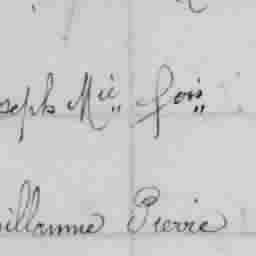 oseph Mie fois
uillaume Pierre